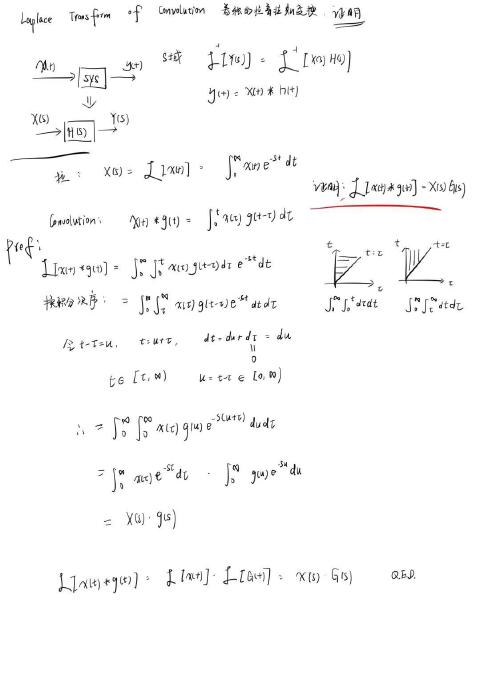 Laplace Transform of Convolution 卷积的拉普拉斯变换. 证明
x(t) → sys → y(t)
S域 L⁻¹[Y(s)] = L⁻¹[X(s) H(s)]
⇓
y(t) = x(t) * h(t)
X(s) → H(s) → Y(s)
拉: X(s) = L[x(t)] = ∫₀^∞ x(t) e^{-st} dt
证明: L[x(t)*g(t)] = X(s)G(s)
Convolution: x(t) * g(t) = ∫₀^t x(τ) g(t-τ) dτ
Prof:
L[x(t)*g(t)] = ∫₀^∞ ∫₀^t x(τ) g(t-τ) dτ e^{-st} dt
t t=τ τ
t t=τ τ
换积分次序: = ∫₀^∞ ∫_τ^∞ x(τ) g(t-τ) e^{-st} dt dτ
∫₀^∞ ∫₀^t dτdt
∫₀^∞ ∫_τ^∞ dtdτ
令 t-τ=u, t=u+τ, dt=du+dτ = du
= 0
t∈ [τ, ∞) u=t-τ ∈ [0, ∞)
∴ = ∫₀^∞ ∫₀^∞ x(τ) g(u) e^{-s(u+τ)} du dτ
= ∫₀^∞ x(τ) e^{-sτ} dτ · ∫₀^∞ g(u) e^{-su} du
= X(s) · g(s)
L[x(t)*g(t)] = L[x(t)] · L[G(t)] = X(s) · G(s) Q.E.D.